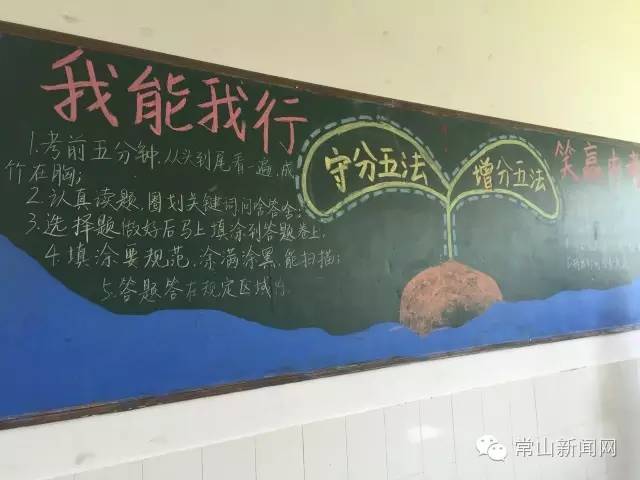 我能我行
1.考前五分钟,从头到尾看一遍,成
竹在胸;
2.认真读题,圈划关键词问啥答啥;
3.选择题做好后马上填涂到答题卷上;
4.填涂要规范,涂满涂黑,能扫描;
5.答题答在规定区域内.
守分五法
增分五法
笑高中
常山新闻网